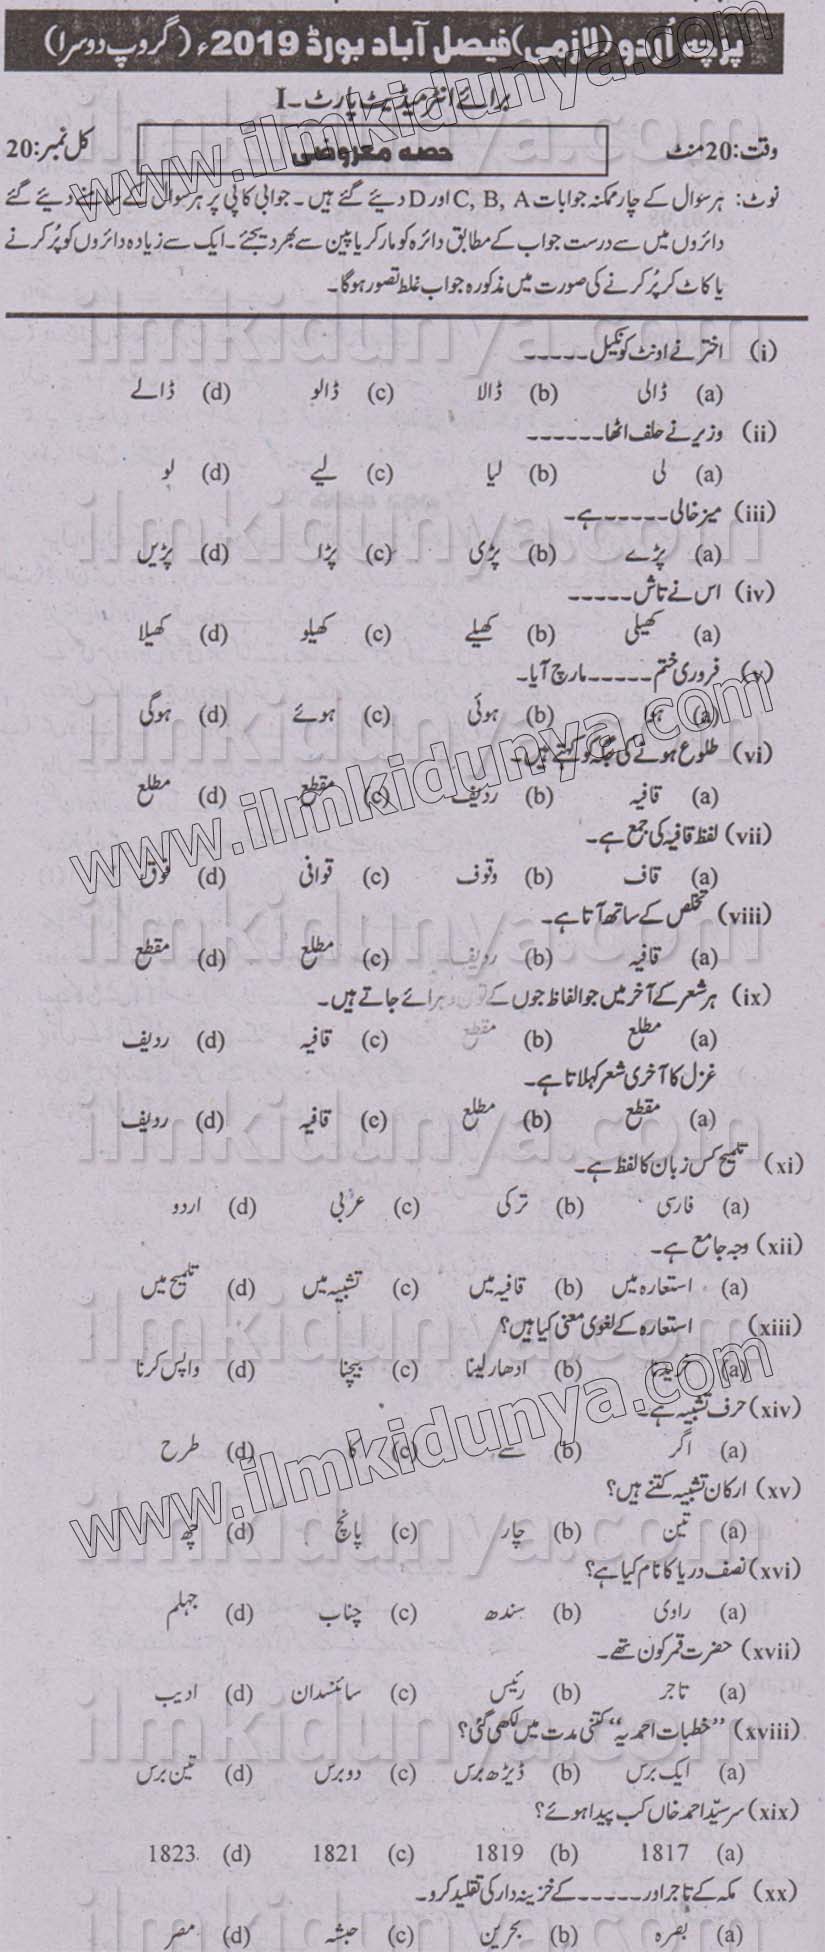 پرچہ اُردو (لازمی) فیصل آباد بورڈ 2019ء (گروپ دوسرا)
برائے انٹرمیڈیٹ پارٹ۔I
وقت:20منٹ حصہ معروضی کل نمبر:20
نوٹ: ہر سوال کے چار ممکنہ جوابات C, B, A اور D دیئے گئے ہیں۔ جوابی کاپی پر ہر سوال کے سامنے دیئے گئے
دائروں میں سے درست جواب کے مطابق دائرہ کو مارکر یا پین سے بھر دیجئے۔ ایک سے زیادہ دائروں کو پُر کرنے
یا کاٹ کر پُر کرنے کی صورت میں مذکورہ جواب غلط تصور ہوگا۔
(i) اختر نے اونٹ کو نکیل ۔۔۔۔۔
(a) ڈالی (b) ڈالا (c) ڈالو (d) ڈالے
(ii) وزیر نے حلف اٹھا ۔۔۔۔۔۔
(a) لی (b) لیا (c) لیے (d) لو
(iii) میز خالی ۔۔۔۔۔ ہے۔
(a) پڑے (b) پڑی (c) پڑا (d) پڑیں
(iv) اس نے تاش ۔۔۔۔۔
(a) کھیلی (b) کھیلے (c) کھیلو (d) کھیلا
(v) فروری ختم ۔۔۔۔۔ مارچ آیا۔
(a) ہوا (b) ہوئی (c) ہوئے (d) ہوگی
(vi) طلوع ہونے کی جگہ کو کہتے ہیں۔
(a) قافیہ (b) ردیف (c) مقطع (d) مطلع
(vii) لفظ قافیہ کی جمع ہے۔
(a) قاف (b) وقوف (c) قوافی (d) فوق
(viii) تخلص کے ساتھ آتا ہے۔
(a) قافیہ (b) ردیف (c) مطلع (d) مقطع
(ix) ہر شعر کے آخر میں جو الفاظ جوں کے توں دہرائے جاتے ہیں۔
(a) مطلع (b) مقطع (c) قافیہ (d) ردیف
غزل کا آخری شعر کہلاتا ہے۔
(a) مقطع (b) مطلع (c) قافیہ (d) ردیف
(xi) تلمیح کس زبان کا لفظ ہے۔
(a) فارسی (b) ترکی (c) عربی (d) اردو
(xii) وجہ جامع ہے۔
(a) استعارہ میں (b) قافیہ میں (c) تشبیہ میں (d) تلمیح میں
(xiii) استعارہ کے لغوی معنی کیا ہیں؟
(a) خریدنا (b) ادھار لینا (c) بیچنا (d) واپس کرنا
(xiv) حرف تشبیہ ہے۔
(a) اگر (b) سے (c) کا (d) طرح
(xv) ارکان تشبیہ کتنے ہیں؟
(a) تین (b) چار (c) پانچ (d) چھ
(xvi) نصف دریا کا نام کیا ہے؟
(a) راوی (b) سندھ (c) چناب (d) جہلم
(xvii) حضرت قمر کون تھے۔
(a) تاجر (b) رئیس (c) سائنسدان (d) ادیب
(xviii) ''خطبات احمدیہ'' کتنی مدت میں لکھی گئی؟
(a) ایک برس (b) ڈیڑھ برس (c) دو برس (d) تین برس
(xix) سرسیّد احمد خاں کب پیدا ہوئے؟
(a) 1817 (b) 1819 (c) 1821 (d) 1823
(xx) مکہ کے تاجر اور ۔۔۔۔۔ کے خزینہ دار کی تقلید کرو۔
(a) بصرہ (b) بحرین (c) حبشہ (d) مصر
www.ilmkidunya.com
www.ilmkidunya.com
www.ilmkidunya.com